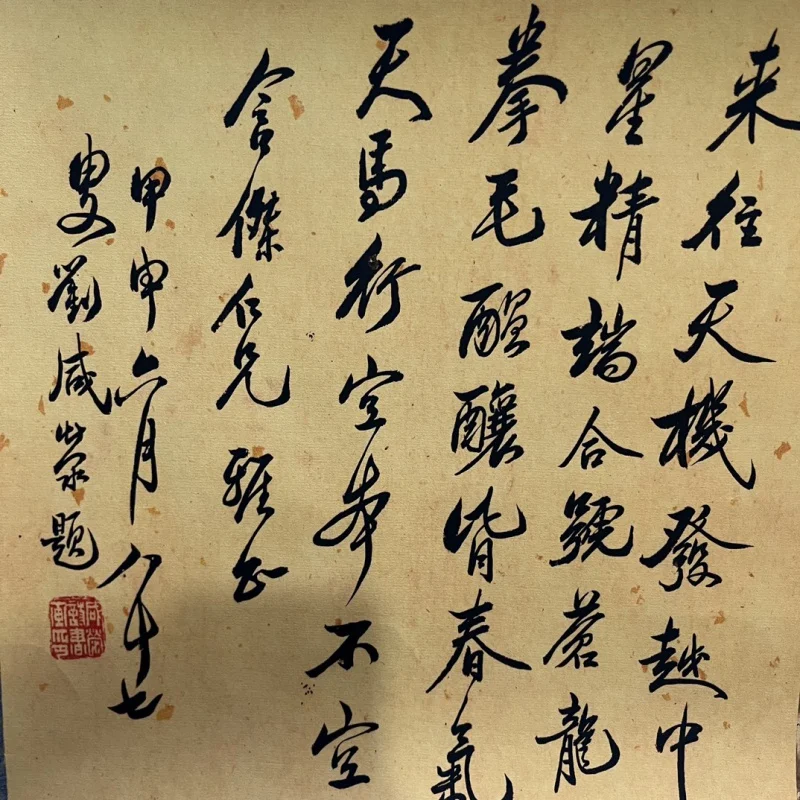 来往天機發越中
星精端合號蒼龍
拳毛醞釀皆春氣
天馬行空本不空
含傑仁兄雅正
甲申六月八十七
叟劉咸滎題